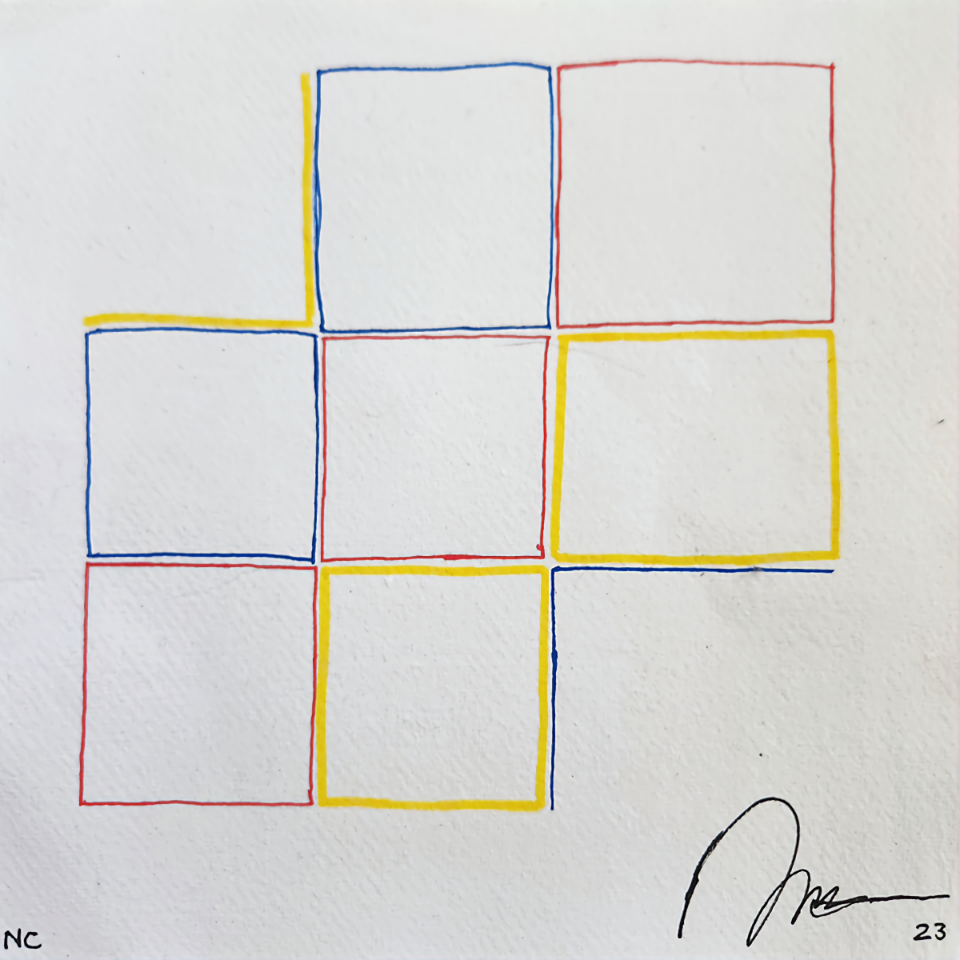 NC
23